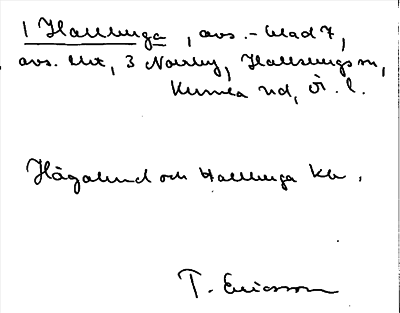 1 Hallbunga, avs. - blad 7,
avs. Utt, 3 Norrby, Hallsbergs sn,
Kumla hd, Ör. l.
Högalund och Hallbunga kln.
T. Ericsson